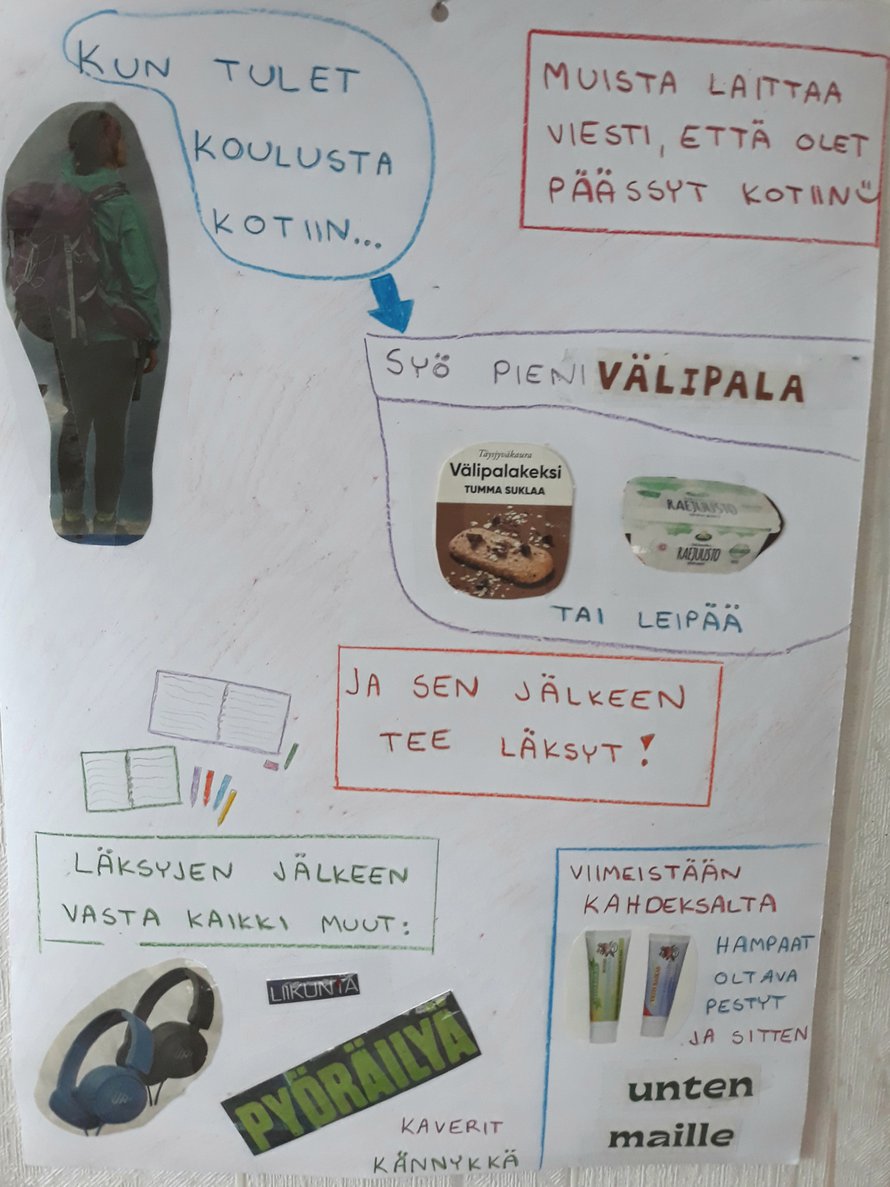 KUN TULET
KOULUSTA
KOTIIN...
MUISTA LAITTAA
VIESTI, ETTÄ OLET
PÄÄSSYT KOTIIN
SYÖ PIENI VÄLIPALA
Täysjyväkaura
Välipalakeksi
TUMMA SUKLAA
RAEJUUSTO
RAEJUUSTO
TAI LEIPÄÄ
JA SEN JÄLKEEN
TEE LÄKSYT!
LÄKSYJEN JÄLKEEN
VASTA KAIKKI MUUT:
LIIKUNTA
PYÖRÄILYÄ
KAVERIT
KÄNNYKKÄ
VIIMEISTÄÄN
KAHDEKSALTA
HAMPAAT
OLTAVA
PESTYT
JA SITTEN
unten
maille